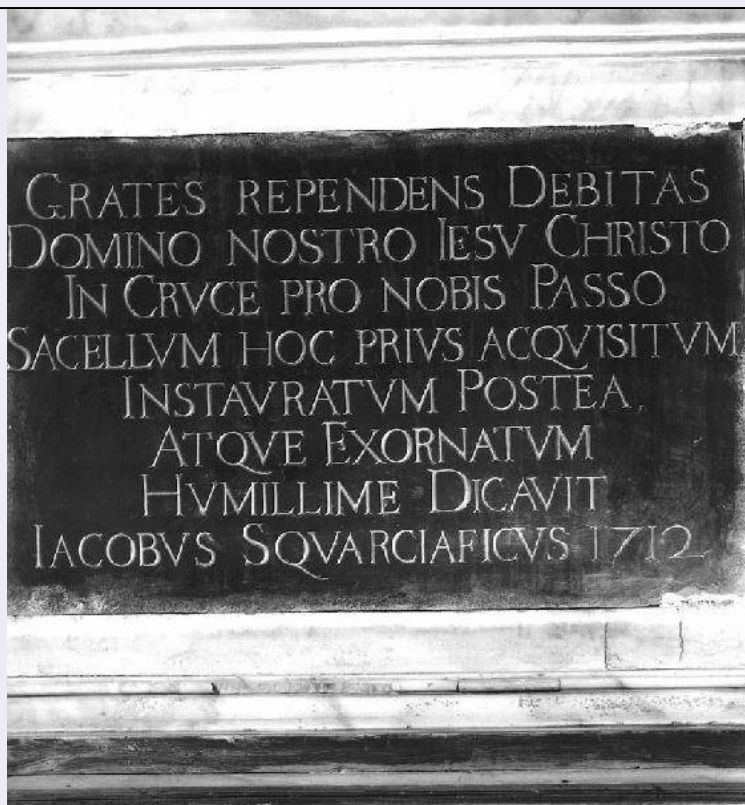 GRATES REPENDENS DEBITAS
DOMINO NOSTRO IESV CHRISTO
IN CRVCE PRO NOBIS PASSO
SACELLVM HOC PRIVS ACQVISITVM
INSTAVRATVM POSTEA,
ATQVE EXORNATVM
HVMILLIME DICAVIT
IACOBVS SQVARCIAFICVS 1712